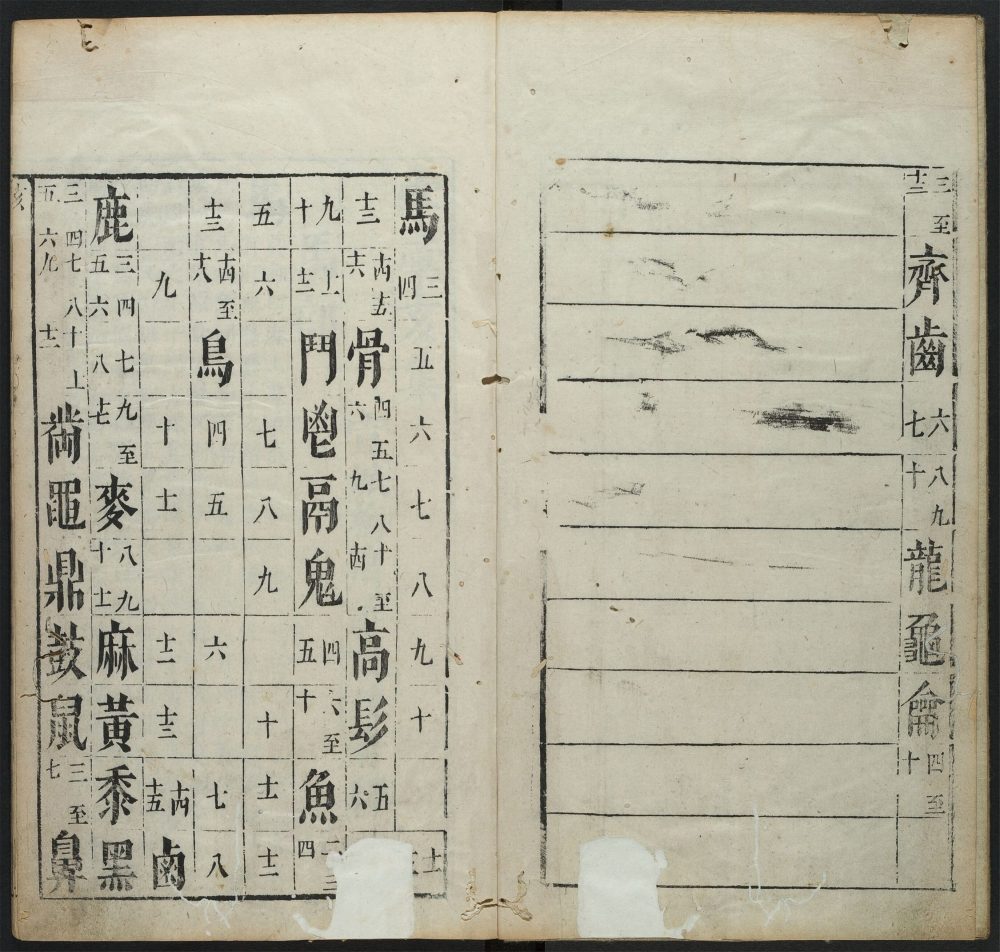 三至齊齒六七八九十龍龜龠四至十
馬三四五六七八九十十一
十三十四十五十六骨四五六七八九十至十四高髟五六
九十十一十二鬥鬯鬲鬼四五六至十魚二三四
五六七八九十十一十二
十三十四至十八鳥四五六七八
九十十一十二十三十四十五鹵
鹿三四五六七八九至十七麥八九十十一麻黃黍黑
三四五六七八九十十一十二黹黽鼎鼓鼠三至七鼻